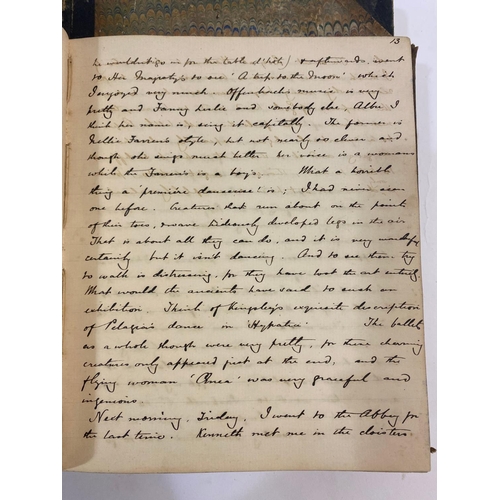 13
he wouldn't go in for the table d'hôte) & afterwards, went
to Her Majesty's to see 'A trip to the Moon' which
I enjoyed very much. Offenbach's music is very
pretty and Fanny Leslie and somebody else, Albu I
think her name is, sing it capitally. The former is
Nellie Farren's style, but not nearly so clever and
though she sings much better her voice is a womans
while the Farren's is a boy's. What a horrible
thing a 'première danseuse' is; I had never seen
one before. Creatures that run about on the points
of their toes, & wave hideously developed legs in the air.
That is about all they can do, and it is very wonderful
certainly but it isn't dancing. And to see them try
to walk is distressing, for they have lost the art entirely.
What would the ancients have said to such an
exhibition. Think of Kingsley's exquisite description
of Pelagia's dance in 'Hypatia'. The ballets
as a whole though were very pretty, for these charming
creatures only appeared just at the end, and the
flying woman was very graceful and
ingenious.
Next morning, Friday, I went to the Abbey for
the last time. Kenneth met me in the cloisters